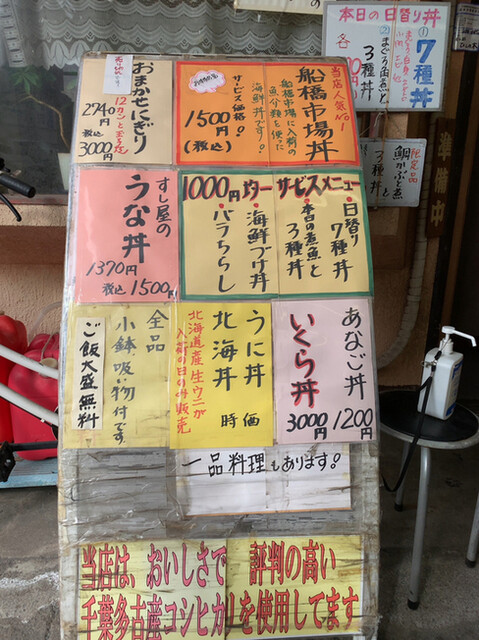 本日の日替り丼
①
7種丼
②
3種丼
各
限定品
鯛かぶと煮
3種丼
準備中
当店人気No1
船橋市場丼
船橋市場に入荷の
魚介類を使った
海鮮丼です!
サービス価格!
1500円
(税込)
おまかせにぎり
12カンと玉子
2740円
税込
3000円
1000円
サービスメニュー
・日替り
7種丼
・本日の煮魚と
3種丼
・海鮮づけ丼
・バラちらし
すし屋の
うな丼
1370円
税込 1500円
あなご丼
1200円
いくら丼
3000円
うに丼
北海丼
時価
北海道産生ウニが
入荷の日のみ販売
全品
小鉢、吸い物付です。
ご飯大盛無料
一品料理もあります!
当店は、おいしさで 評判の高い
千葉多古産コシヒカリを使用してます